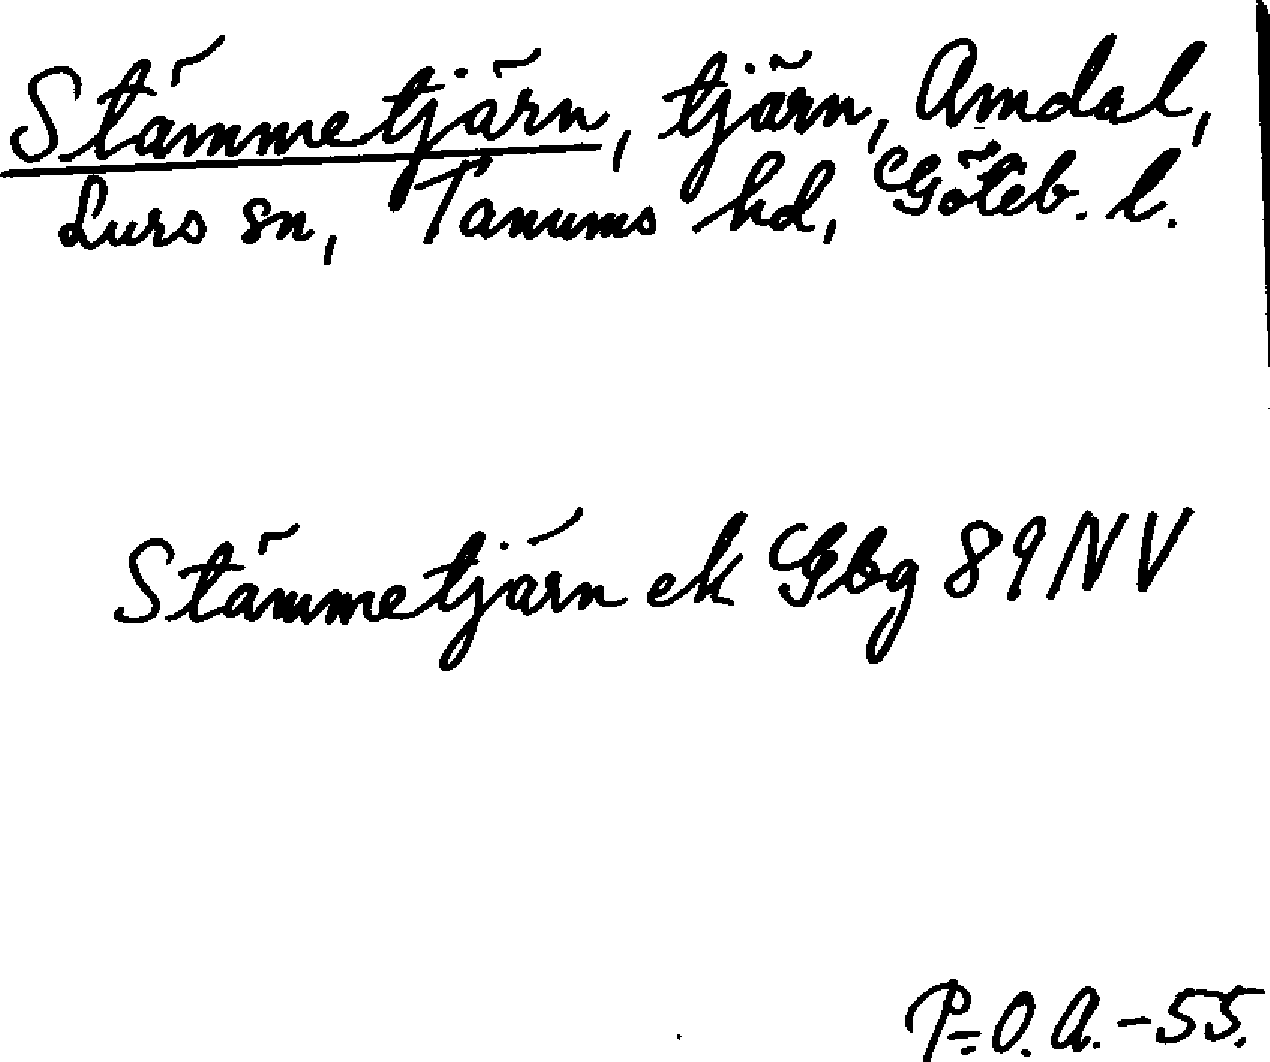 Stämmetjärn, tjärn, Amdal,
Lurs sn, Tanums hd, Göteb. l.
Stämmetjärn ek Gbg 89 NV
P-O. A. -55.